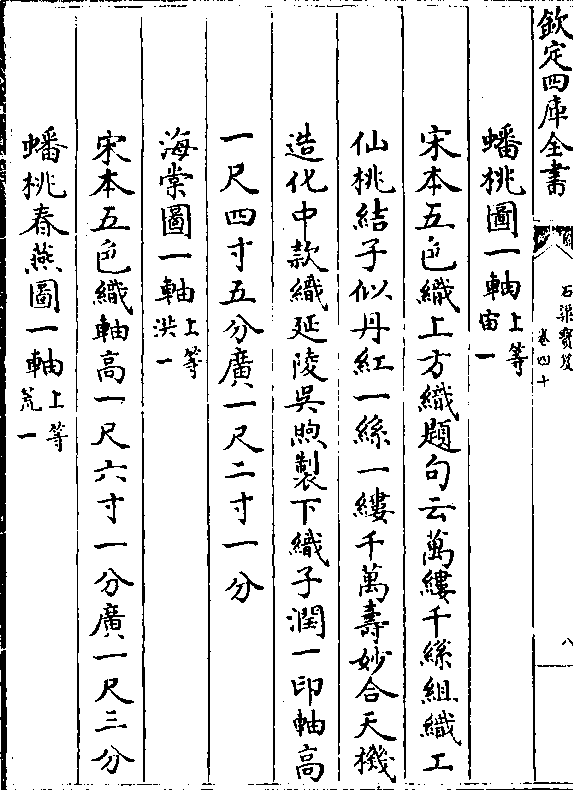 欽定四庫全書
石渠寶笈
卷四十
八
蟠桃圖一軸上等宙一
宋本五色織上方織題句云萬縷千絲組織工
仙桃結子似丹紅一絲一縷千萬壽妙合天機
造化中款織延陵吳煦製下織子潤一印軸高
一尺四寸五分廣一尺二寸一分
海棠圖一軸上等洪一
宋本五色織軸高一尺六寸一分廣一尺三分
蟠桃春燕圖一軸上等荒一